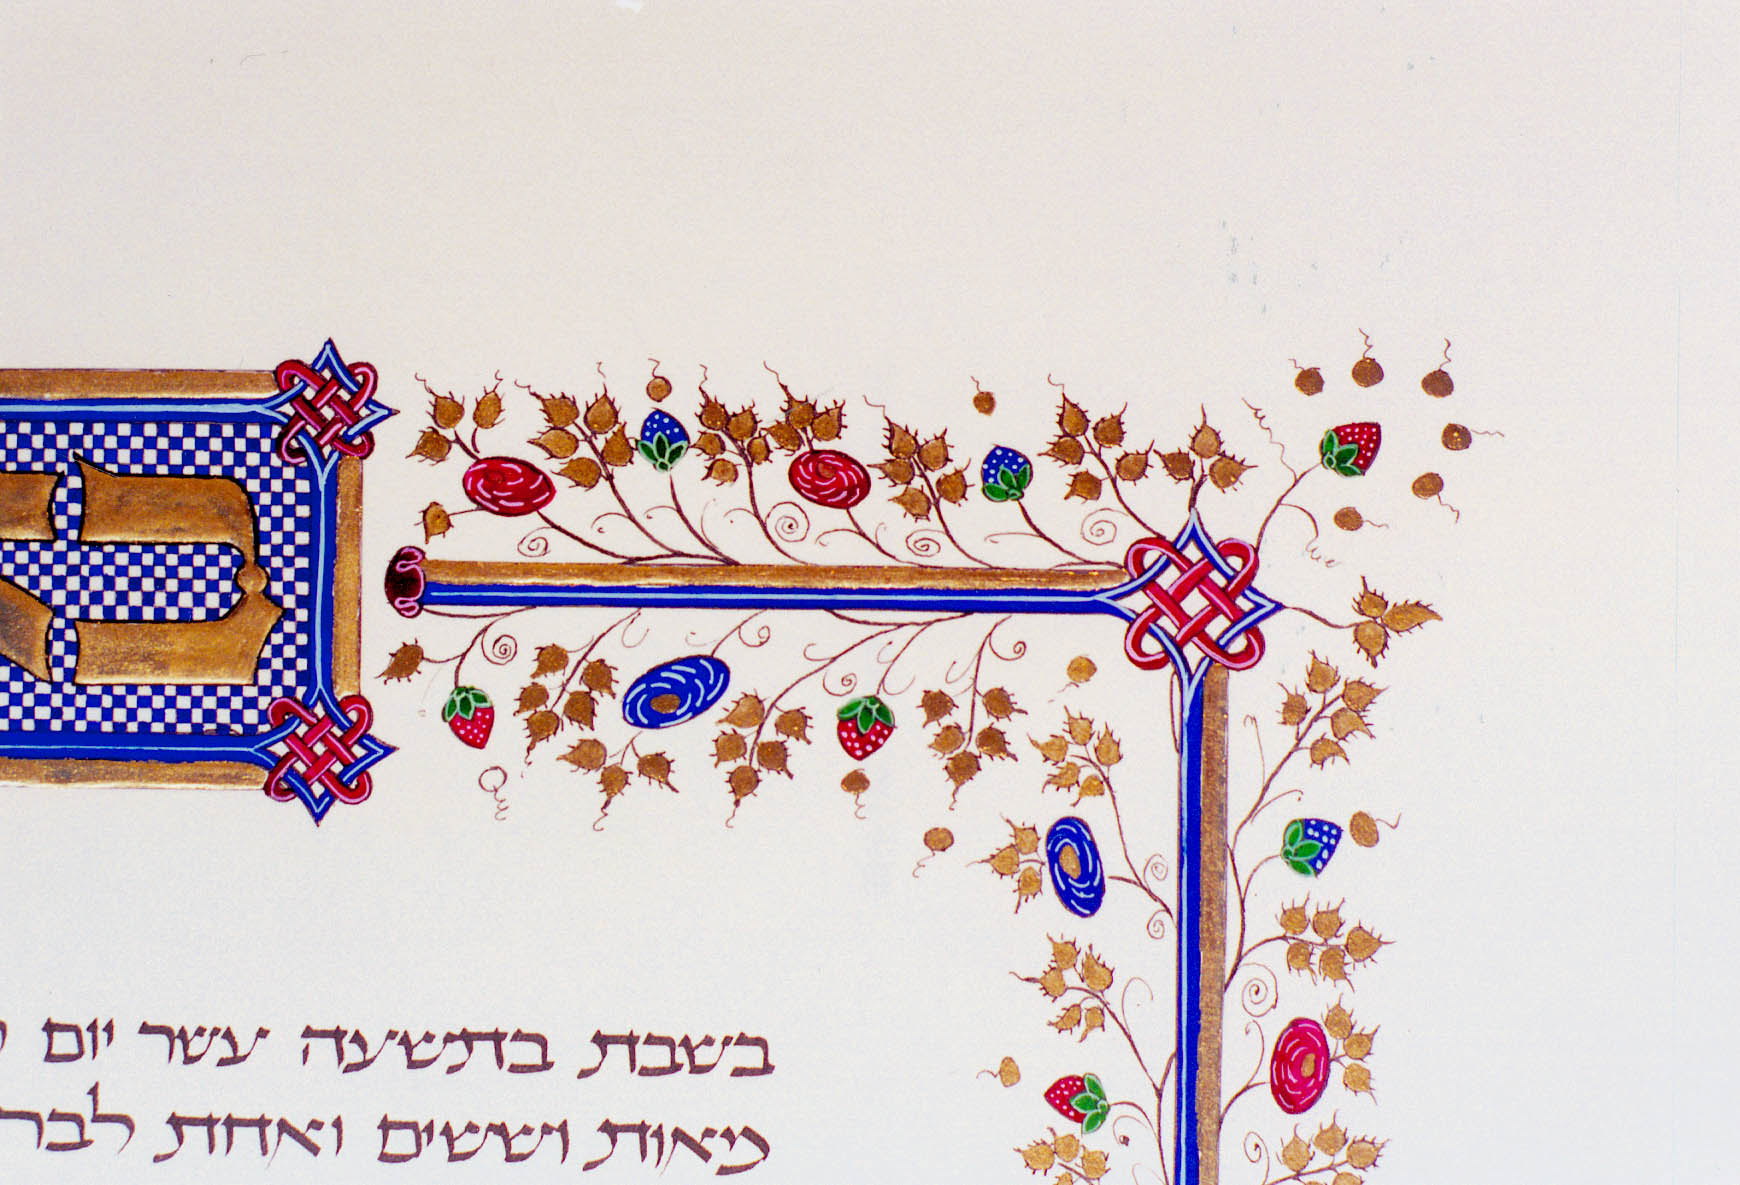 בשבת בתשעה עשר יום
מאות וששים ואחת לבר